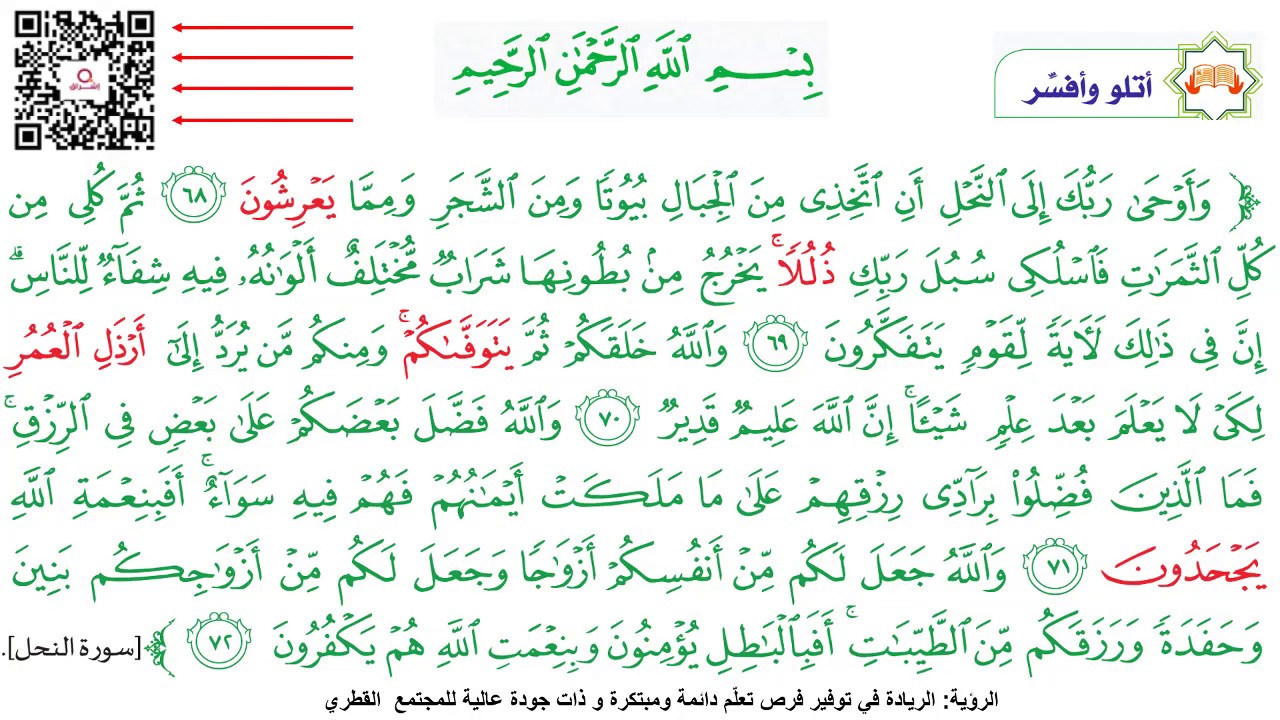 أتلو وأفسِّر
بِسۡمِ ٱللَّهِ ٱلرَّحۡمَٰنِ ٱلرَّحِيمِ
إشراق
﴿ وَأَوۡحَىٰ رَبُّكَ إِلَى ٱلنَّحۡلِ أَنِ ٱتَّخِذِي مِنَ ٱلۡجِبَالِ بُيُوتٗا وَمِنَ ٱلشَّجَرِ وَمِمَّا يَعۡرِشُونَ ٦٨ ثُمَّ كُلِي مِن
كُلِّ ٱلثَّمَرَٰتِ فَٱسۡلُكِي سُبُلَ رَبِّكِ ذُلُلٗاۚ يَخۡرُجُ مِنۢ بُطُونِهَا شَرَابٞ مُّخۡتَلِفٌ أَلۡوَٰنُهُۥ فِيهِ شِفَآءٞ لِّلنَّاسِۗ
إِنَّ فِي ذَٰلِكَ لَأٓيَةٗ لِّقَوۡمٖ يَتَفَكَّرُونَ ٦٩ وَٱللَّهُ خَلَقَكُمۡ ثُمَّ يَتَوَفَّىٰكُمۡۚ وَمِنكُم مَّن يُرَدُّ إِلَىٰٓ أَرۡذَلِ ٱلۡعُمُرِ
لِكَيۡ لَا يَعۡلَمَ بَعۡدَ عِلۡمٖ شَيۡـًٔاۚ إِنَّ ٱللَّهَ عَلِيمٞ قَدِيرٞ ٧٠ وَٱللَّهُ فَضَّلَ بَعۡضَكُمۡ عَلَىٰ بَعۡضٖ فِي ٱلرِّزۡقِۚ
فَمَا ٱلَّذِينَ فُضِّلُواْ بِرَآدِّي رِزۡقِهِمۡ عَلَىٰ مَا مَلَكَتۡ أَيۡمَٰنُهُمۡ فَهُمۡ فِيهِ سَوَآءٌۚ أَفَبِنِعۡمَةِ ٱللَّهِ
يَجۡحَدُونَ ٧١ وَٱللَّهُ جَعَلَ لَكُم مِّنۡ أَنفُسِكُمۡ أَزۡوَٰجٗا وَجَعَلَ لَكُم مِّنۡ أَزۡوَٰجِكُم بَنِينَ
وَحَفَدَةٗ وَرَزَقَكُم مِّنَ ٱلطَّيِّبَٰتِۚ أَفَبِٱلۡبَٰطِلِ يُؤۡمِنُونَ وَبِنِعۡمَتِ ٱللَّهِ هُمۡ يَكۡفُرُونَ ٧٢ ﴾ [سورة النحل].
الرؤية: الريادة في توفير فرص تعلّم دائمة ومبتكرة و ذات جودة عالية للمجتمع القطري